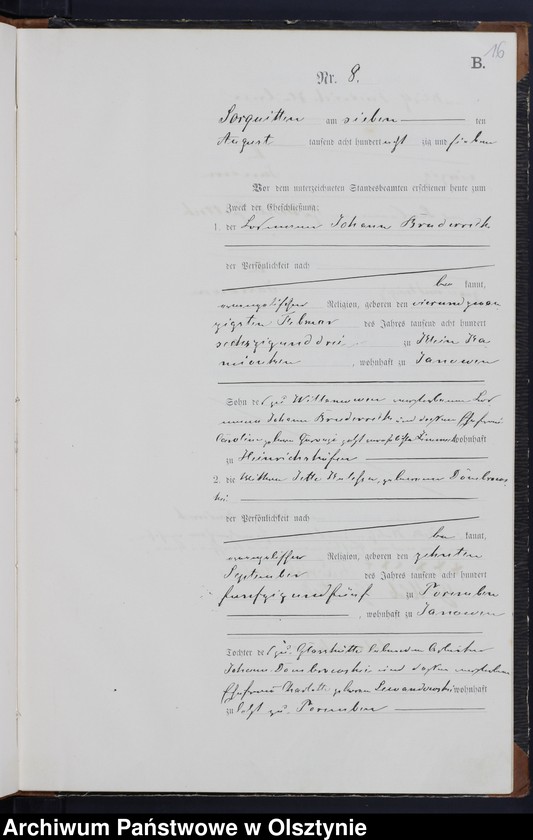 16
B.
Nr. 8.
Sorquitten am sieben ten
August tausend acht hundert acht zig und sieben
Vor dem unterzeichneten Standesbeamten erschienen heute zum
Zweck der Eheschließung:
1. der Losmann Johann Bruderrek
der Persönlichkeit nach
be kannt,
evangelischer Religion, geboren den vierundzwan
zigsten Februar des Jahres tausend acht hundert
sechszigunddrei zu Klein Ka
mionken, wohnhaft zu Janowen
Sohn des zu verstorbenen Los
manns Johann Bruderrek und dessen Ehefrau
Caroline geborene jetzt wohnhaft
zu Heinrichshöfen
2. die Wittwe Jette geborene Dombrows
ki
der Persönlichkeit nach
be kannt,
evangelischer Religion, geboren den zehnten
September des Jahres tausend acht hundert
fünfzigundfünf zu Poremben
, wohnhaft zu Janowen
Tochter des zu Glashütte
Johann Dombrowski und dessen verstorbenen
Ehefrau Charlotte geborene Lewandowski wohnhaft
zu letzt zu Poremben
Archiwum Państwowe w Olsztynie